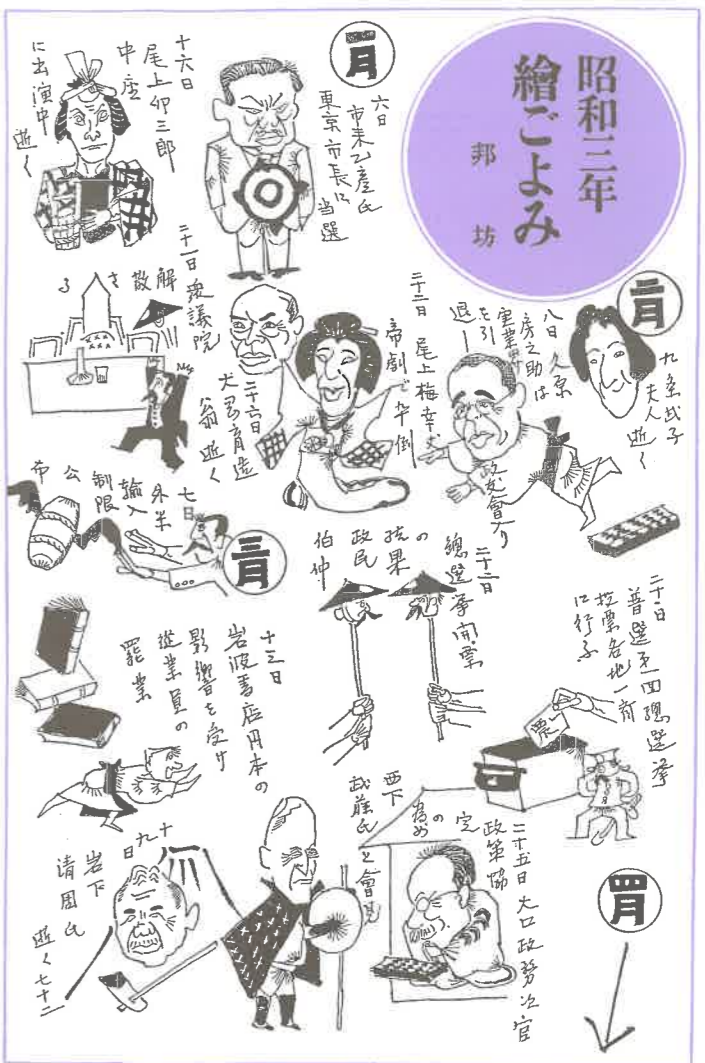 昭和三年
繪ごよみ
邦坊
一月
六日
市来乙彦氏
東京市長に
当選
十六日
尾上卯三郎
中座
に出演中
逝く
二十一日衆議院
解散さる
二十二日 尾上梅幸丈
帝劇で卒倒
二十六日
犬養
翁逝く
二月
九条武子
夫人逝く
八日 久原
房之助は
実業界
を引
退し
政友會入り
二十日
普選第一回總選挙
投票各地一斉
に行ふ
票
二十二日
總選挙開票
の結果
政民
伯仲
三月
七日
外米
輸入
制限
公布
十三日
岩波書店円本の
影響を受け
從業員の
罷業
十九日
岩下
清周氏
逝く七十二
二十五日 大口政務次官
政策協
定
の
為め
西下
武藤氏と會見
四月